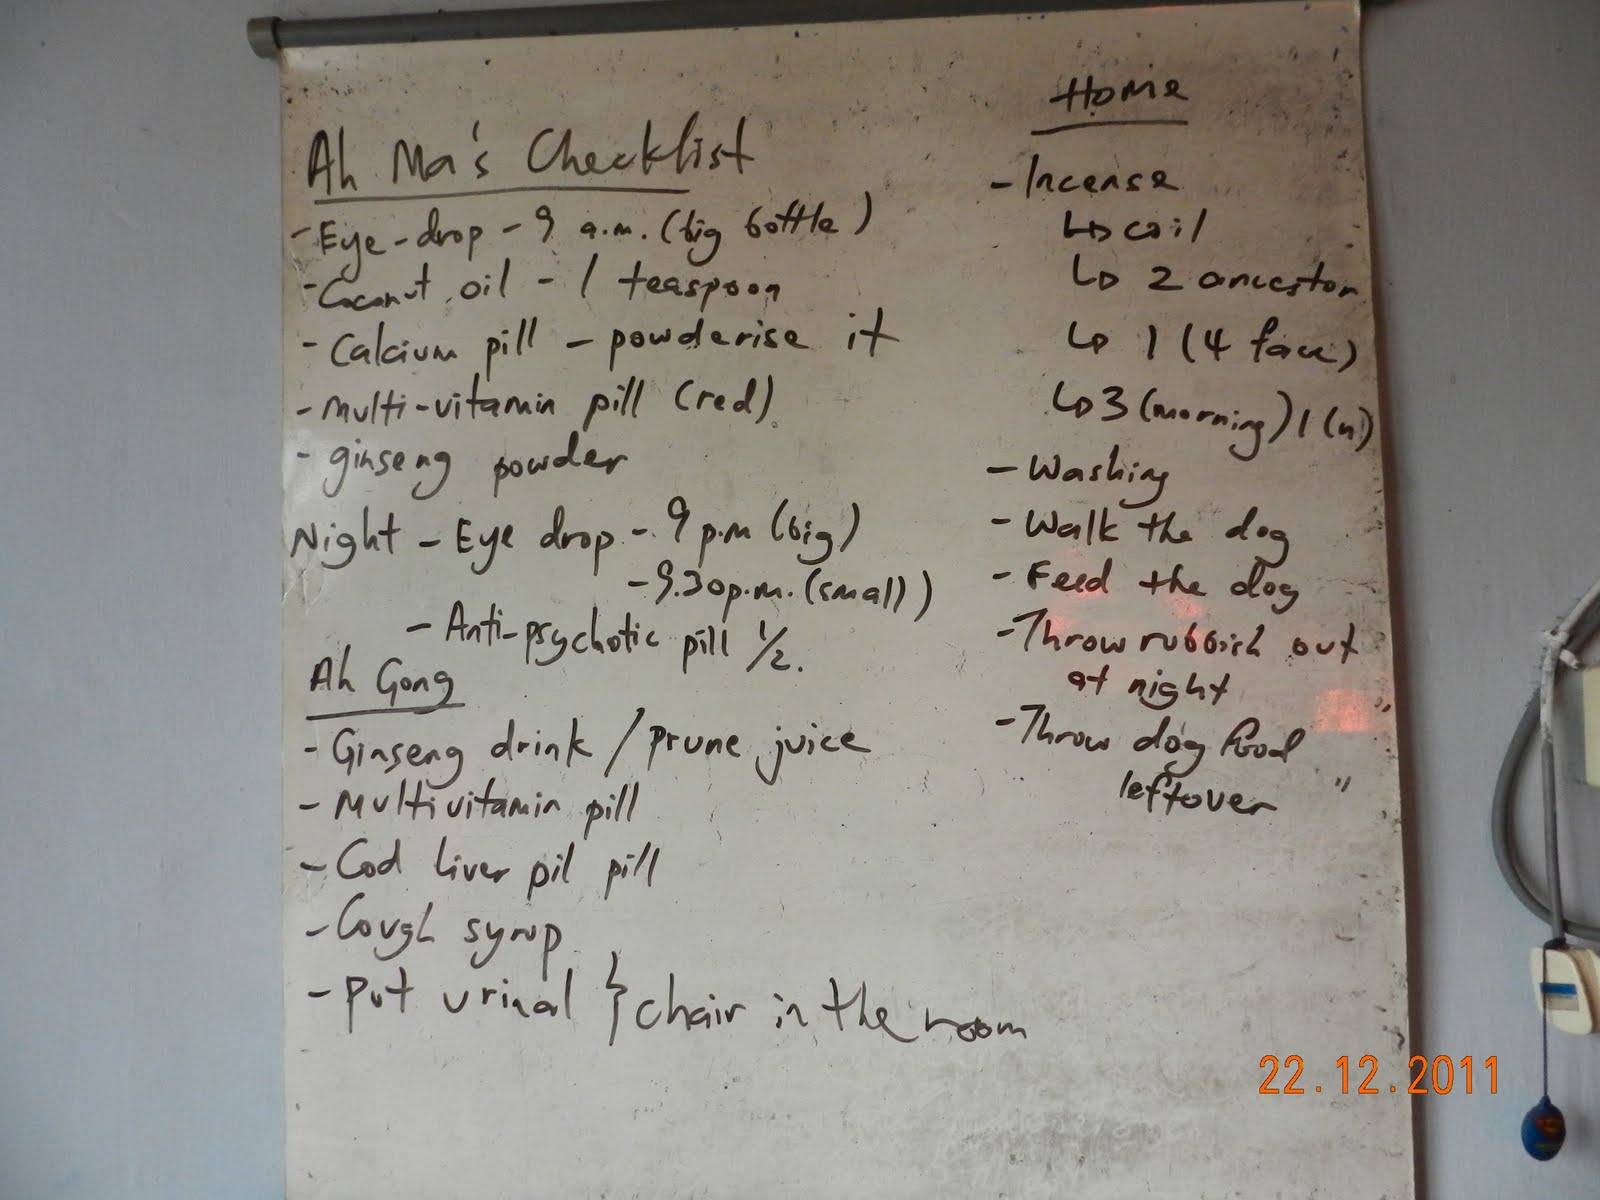 Ah Ma's Checklist
- Eye-drop - 9 a.m. (big bottle)
- Coconut oil - 1 teaspoon
- Calcium pill - powderise it
- Multi-vitamin pill (red)
- ginseng powder
Night - Eye drop - 9 p.m (big)
- 9.30p.m. (small)
- Anti-psychotic pill 1/2.
Ah Gong
- Ginseng drink / prune juice
- Multivitamin pill
- Cod liver oil pill
- Cough syrup
- Put urinal } chair in the room
Home
- Incense
↳ coil
↳ 2 ancestor
↳ 1 (4 face)
↳ 3 (morning) 1 (n)
- Washing
- Walk the dog
- Feed the dog
- Throw rubbish out
at night "
- Throw dog food
leftover "
22.12.2011